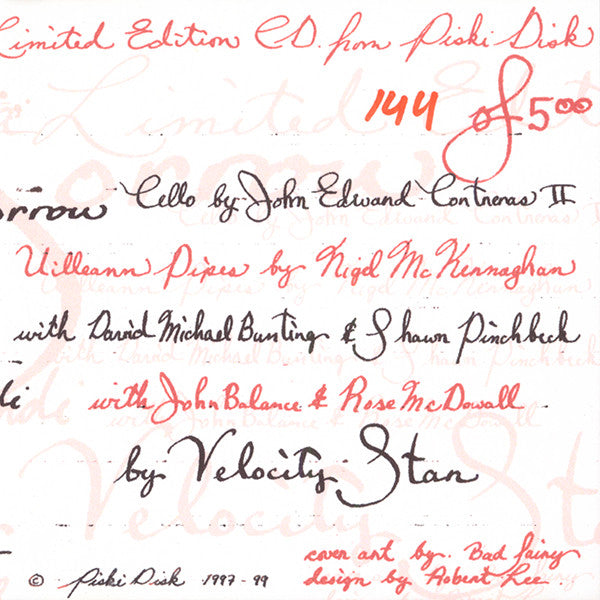 Limited Edition CD. from Piski Disk
144 of 500
orrow Cello by John Edward Contreras II
Uilleann Pipes by Nigel McKernaghan
with David Michael Bunting & Shawn Pinchbeck
di with John Balance & Rose McDowall
by Velocity Stan
cover art by. Bad fairy
© Piski Disk 1997-99 design by Robert Lee.